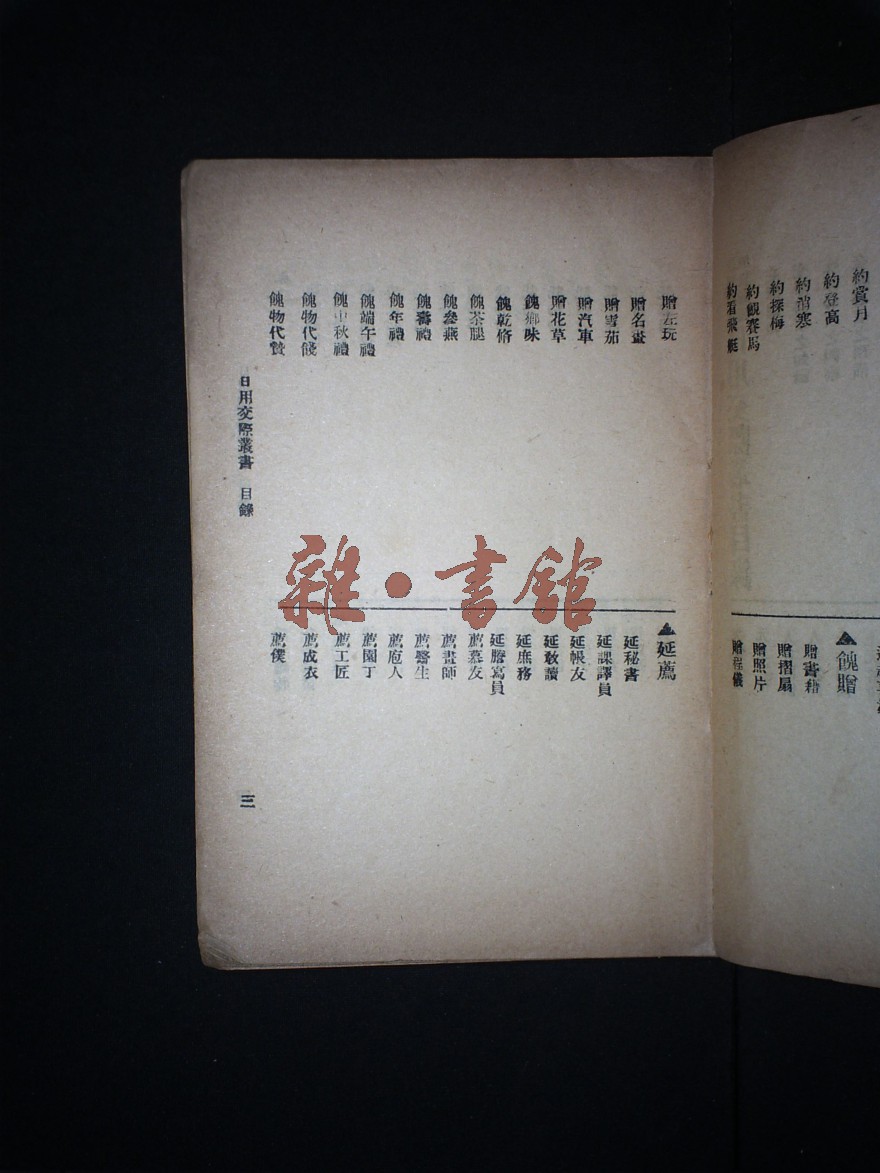 約賞月
約登高
約消寒
約探梅
約觀賽馬
約看飛艇
▲餽贈
贈書籍
贈摺扇
贈照片
贈程儀
贈古玩
贈名畫
贈雪茄
贈汽車
贈花草
餽鄉味
餽乾脩
餽茶腿
餽參燕
餽壽禮
餽年禮
餽端午禮
餽中秋禮
餽物代餞
餽物代贄
▲延薦
延秘書
延課譯員
延帳友
延教讀
延庶務
延謄寫員
薦幕友
薦畫師
薦醫生
薦庖人
薦園丁
薦工匠
薦成衣
薦僕
日用交際叢書 目錄
三
雜·書館